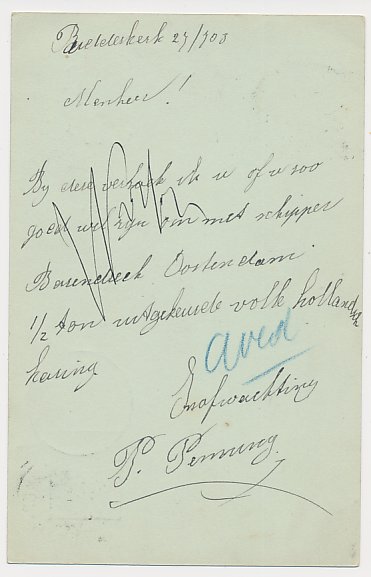 Breskens 27/7 03
Menheer!
By dese versoek ik u of u soo
goed wil zijn om met schipper
Barendrech Oostendam
1/2 ton uitgekeurde volk hollandsch
haring
avia
In afwachting
P. Penning